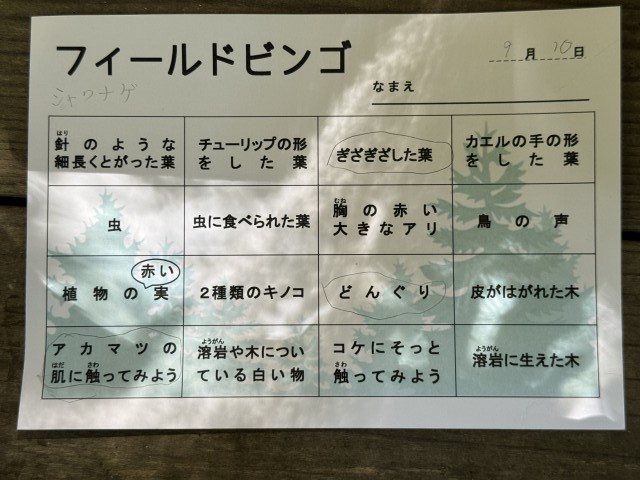 フィールドビンゴ
9月10日
シャクナゲ
なまえ
はり
針のような
細長くとがった葉
チューリップの形
をした葉
ぎざぎざした葉
カエルの手の形
をした葉
虫
虫に食べられた葉
むね
胸の赤い
大きなアリ
鳥の声
赤い
植物の実
2種類のキノコ
どんぐり
皮がはがれた木
アカマツの
はだ さわ
肌に触ってみよう
ようがん
溶岩や木につい
ている白い物
コケにそっと
さわ
触ってみよう
ようがん
溶岩に生えた木